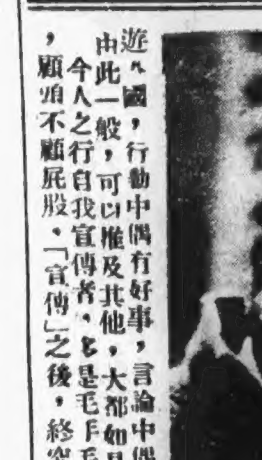 遊各國，行動中偶有好事，言論中偶
由此一般，可以推及其他，大都如是
今人之行自我宣傳者，多是毛手毛
，顧頭不顧屁股。「宣傳」之後，終